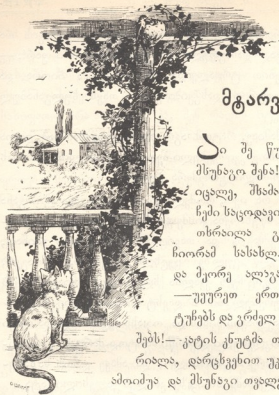 მტარვ
ი შე წუ
მსუნაგო შენა!
იცალე, შხამა
ჩემი საცოდავი
თხრაილა გ
ჩიორამ სასახლ
და მეორე ალაგა
—უყურეთ ერთ
ტუჩებს და გრძელ
შებს!— კატის კნუტმა თ
რიალა, დარცხვენით უკ
ამოიძუა და მსუნაგი თვალე